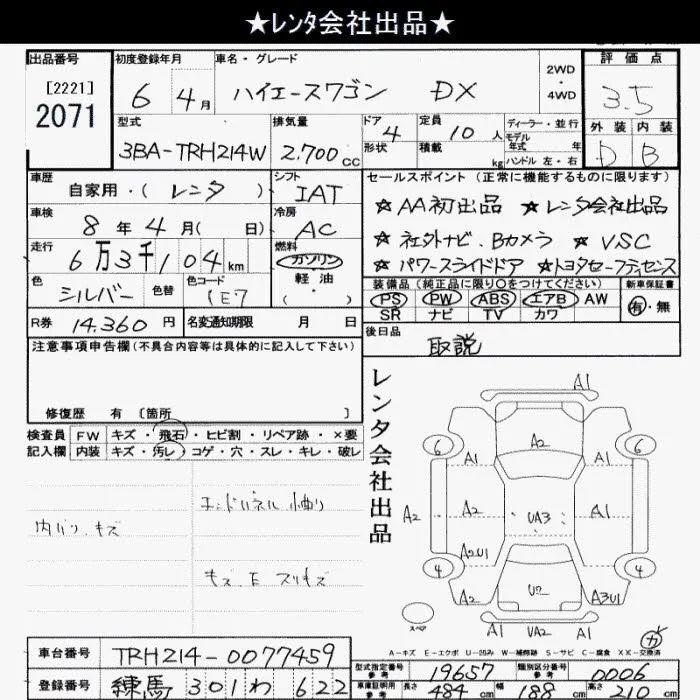 ★レンタ会社出品★
出品番号 初度登録年月 車名・グレード 2WD・4WD 評価点
[2221]
2071
6 4月 ハイエースワゴン DX 3.5
型式 排気量 ドア 定員 ディーラー・並行 外装 内装
3BA-TRH214W 2.700cc 4 10人 モデル年式 年 D B
形状 積載 kg ハンドル 左・右
車歴 シフト セールスポイント (正常に機能するものに限ります)
自家用・(レンタ) IAT ★AA初出品 ★レンタ会社出品
車検 冷房
8年4月(日) AC ★社外ナビ、Bカメラ ★VSC
走行 燃料
6万3千104km ガソリン ★パワースライドドア ★トヨタセーフティセンス
軽油
色 色替 色コード 装備品(純正品に限り○をつけてください) 新車保証書
シルバー 1E7 (・) PS PW ABS エアB AW 有・無
SR ナビ TV カワ
R券 14.360円 名変通知期限 月 日 後日品
取説
注意事項申告欄(不具合内容等は具体的に記入して下さい)
修復歴 有 [箇所 ]
検査員 FW キズ・飛石・ヒビ割・リペア跡・×要
記入欄 内装 キズ・汚レ・コゲ・穴・スレ・キレ・破レ
内バリ、キズ
エンドパネル 小曲り
キズ、E スリキズ
レンタ会社出品
A1
6 A2 6
A1 A1
A2 A2 UA3 A1
A2U1
4 4
A2 U2 A3U1
スペア
A1 UA2 A1
カ
A-キズ E-エクボ U-凹み W-補修跡 S-サビ C-腐食 ××-交換済
車台番号 TRH214-0077459
型式指定番号 参考 19657 類別区分番号 参考 0006
登録番号 練馬 301 わ 622
車庫証明用 参考 長さ 484cm 幅 188cm 高さ 210cm